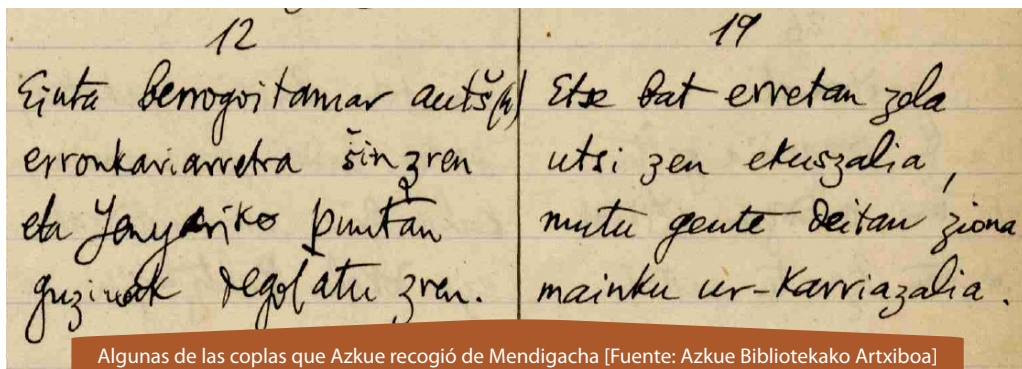 12
Eiuta berrogoitamar autš(k)
erronkariarretra šin zren
eta Yenyariko puntan
guziuak degolatu zren.
19
Etse bat erretan zela
utsi zen ekuszalia,
mutu gente deitan ziona
mainku ur-karriazalia.
Algunas de las coplas que Azkue recogió de Mendigacha [Fuente: Azkue Bibliotekako Artxiboa]